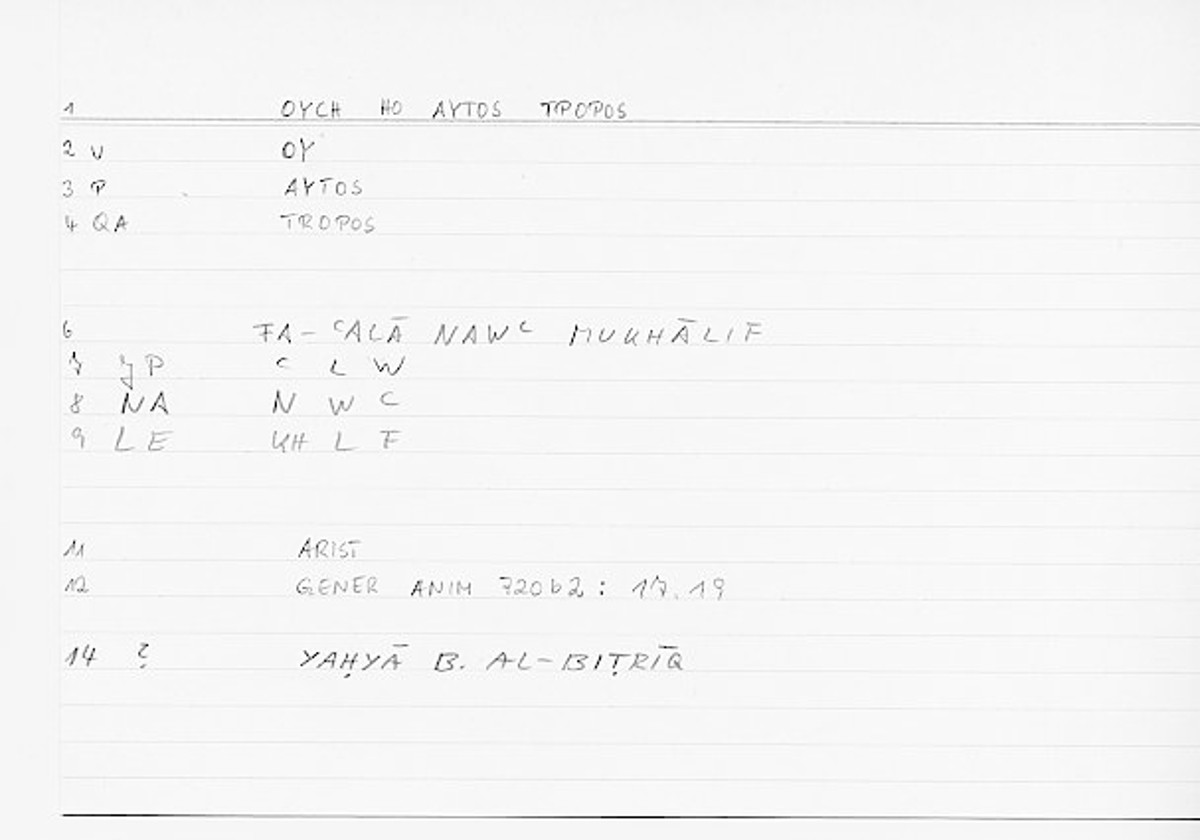 1 OYCH HO AYTOS TPOPOS
2 V OY
3 P AYTOS
4 QA TROPOS
6 FA-ʿALĀ NAWʿ MUKHĀLIF
7 JP ʿ L W
8 NA N W ʿ
9 LE KH L F
11 ARIST
12 GENER ANIM 720b2: 17.19
14 ? YAḤYĀ B. AL-BIṬRĪQ